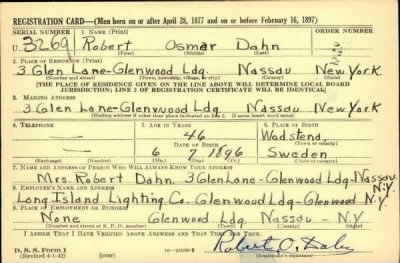 REGISTRATION CARD—(Men born on or after April 28, 1877 and on or before February 16, 1897)
SERIAL NUMBER 1. NAME (Print) ORDER NUMBER
U 3269 Robert Osmar Dahn
(First) (Middle) (Last)
2. PLACE OF RESIDENCE (Print)
3 Glen Lane-Glenwood Ldg. Nassau New York
(Number and street) (Town, township, village, or city) (County) (State)
[THE PLACE OF RESIDENCE GIVEN ON THE LINE ABOVE WILL DETERMINE LOCAL BOARD
JURISDICTION; LINE 2 OF REGISTRATION CERTIFICATE WILL BE IDENTICAL]
3. MAILING ADDRESS
3 Glen Lane-Glenwood Ldg. Nassau New York
[Mailing address if other than place indicated on line 2. If same insert word same]
4. TELEPHONE 5. AGE IN YEARS 6. PLACE OF BIRTH
— 46 Wadstena,
DATE OF BIRTH (Town or county)
— — 6 7 1896 Sweden
(Exchange) (Number) (Mo.) (Day) (Yr.) (State or country)
7. NAME AND ADDRESS OF PERSON WHO WILL ALWAYS KNOW YOUR ADDRESS
Mrs. Robert Dahn. 3 Glen Lane-Glenwood Ldg.-Nassau N.Y.
8. EMPLOYER'S NAME AND ADDRESS
Long Island Lighting Co. Glenwood Ldg.-Glenwood N.Y.
9. PLACE OF EMPLOYMENT OR BUSINESS
None Glenwood Ldg. Nassau - N.Y.
(Number and street or R. F. D. number) (Town) (County) (State)
I AFFIRM THAT I HAVE VERIFIED ABOVE ANSWERS AND THAT THEY ARE TRUE.
D. S. S. Form 1
(Revised 4-1-42) (over)
Robert O. Dahn
(Registrant's signature)